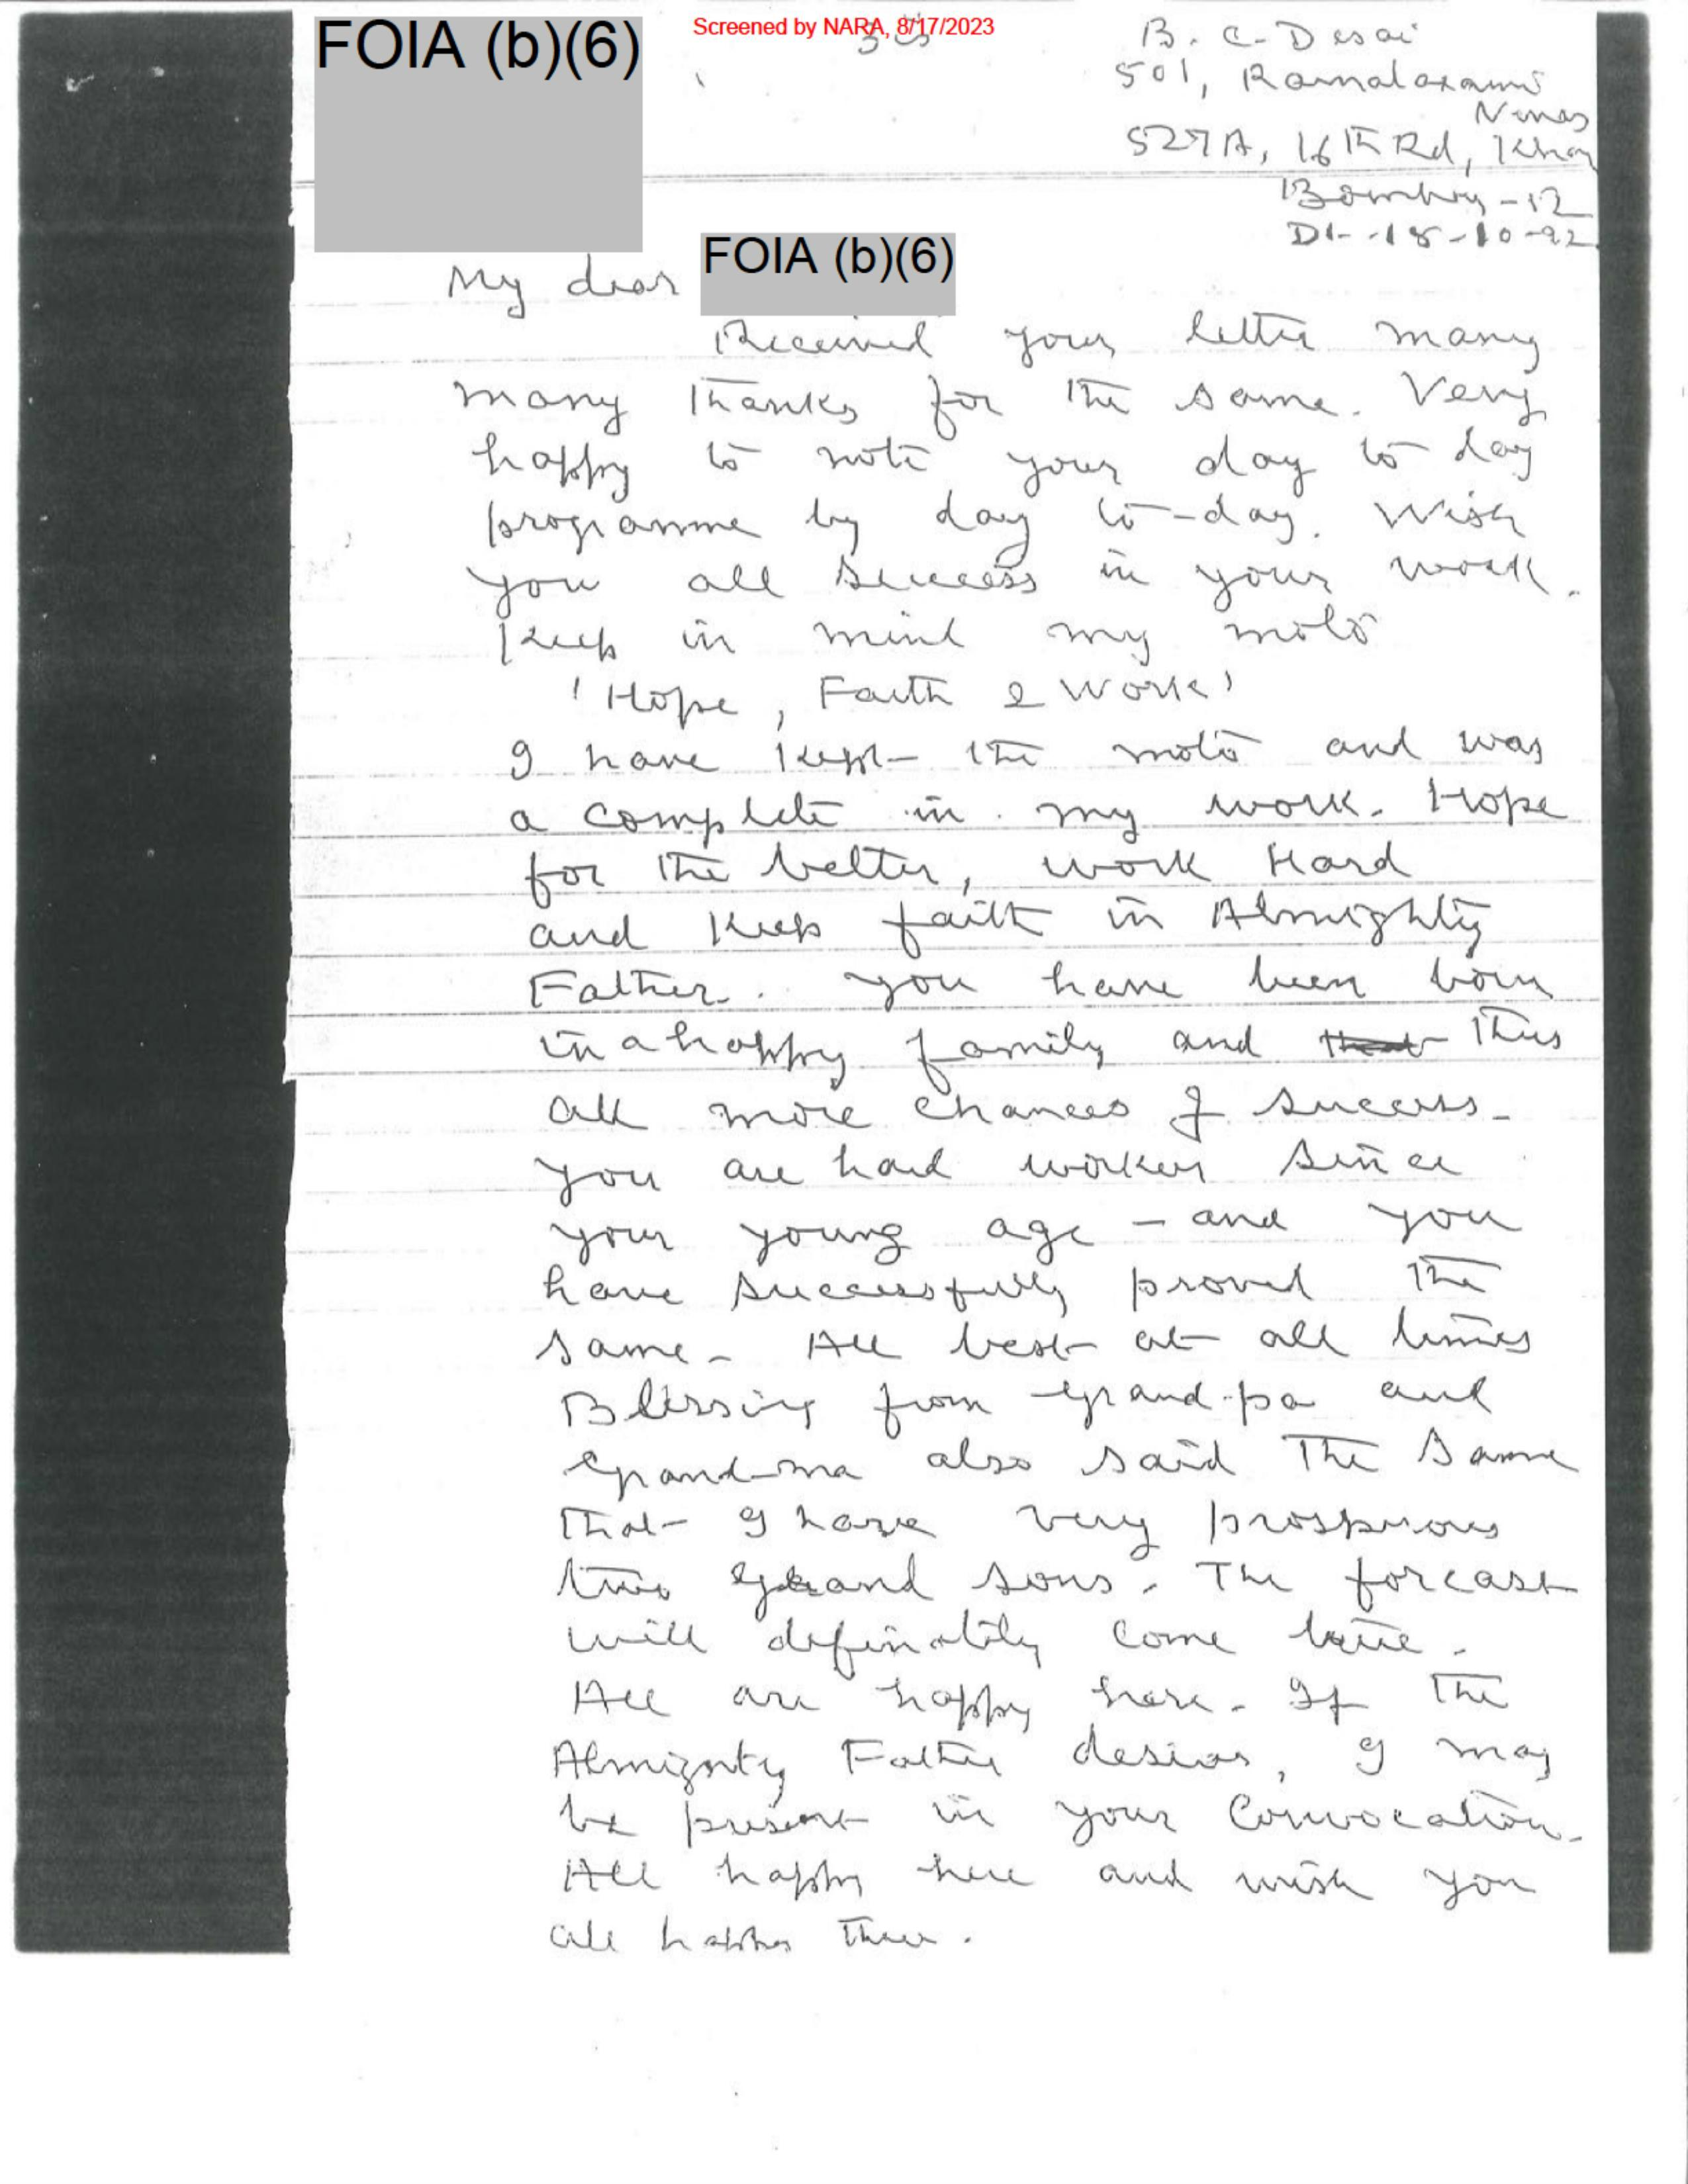 FOIA (b)(6)
Screened by NARA, 8/17/2023
B. C. Desai
501,
527A, 16th Rd, Khar
Bombay - 52
Dt - 18-10-92
My dear FOIA (b)(6)
Received your letter many
many thanks for the same. Very
happy to note your day to day
programme by day to-day. Wish
you all success in your work.
Keep in mind my moto
'Hope, Faith & Work'
I have kept the moto and was
a complete in my work. Hope
for the better, work Hard
and Keep faith in Almighty
Father. you have been born
in a happy family and thus
all more chances of success.
you are hard worker since
your young age - and you
have successfully proved the
same. All best at all times
Blessing from grand-pa and
grand-ma also said the same
that I have very prosperous
two grand sons. The forcast
will definatily come true.
All are happy here. If the
Almighty Father desires, I may
be present in your Convocation.
All happy here and wish you
all happy there.